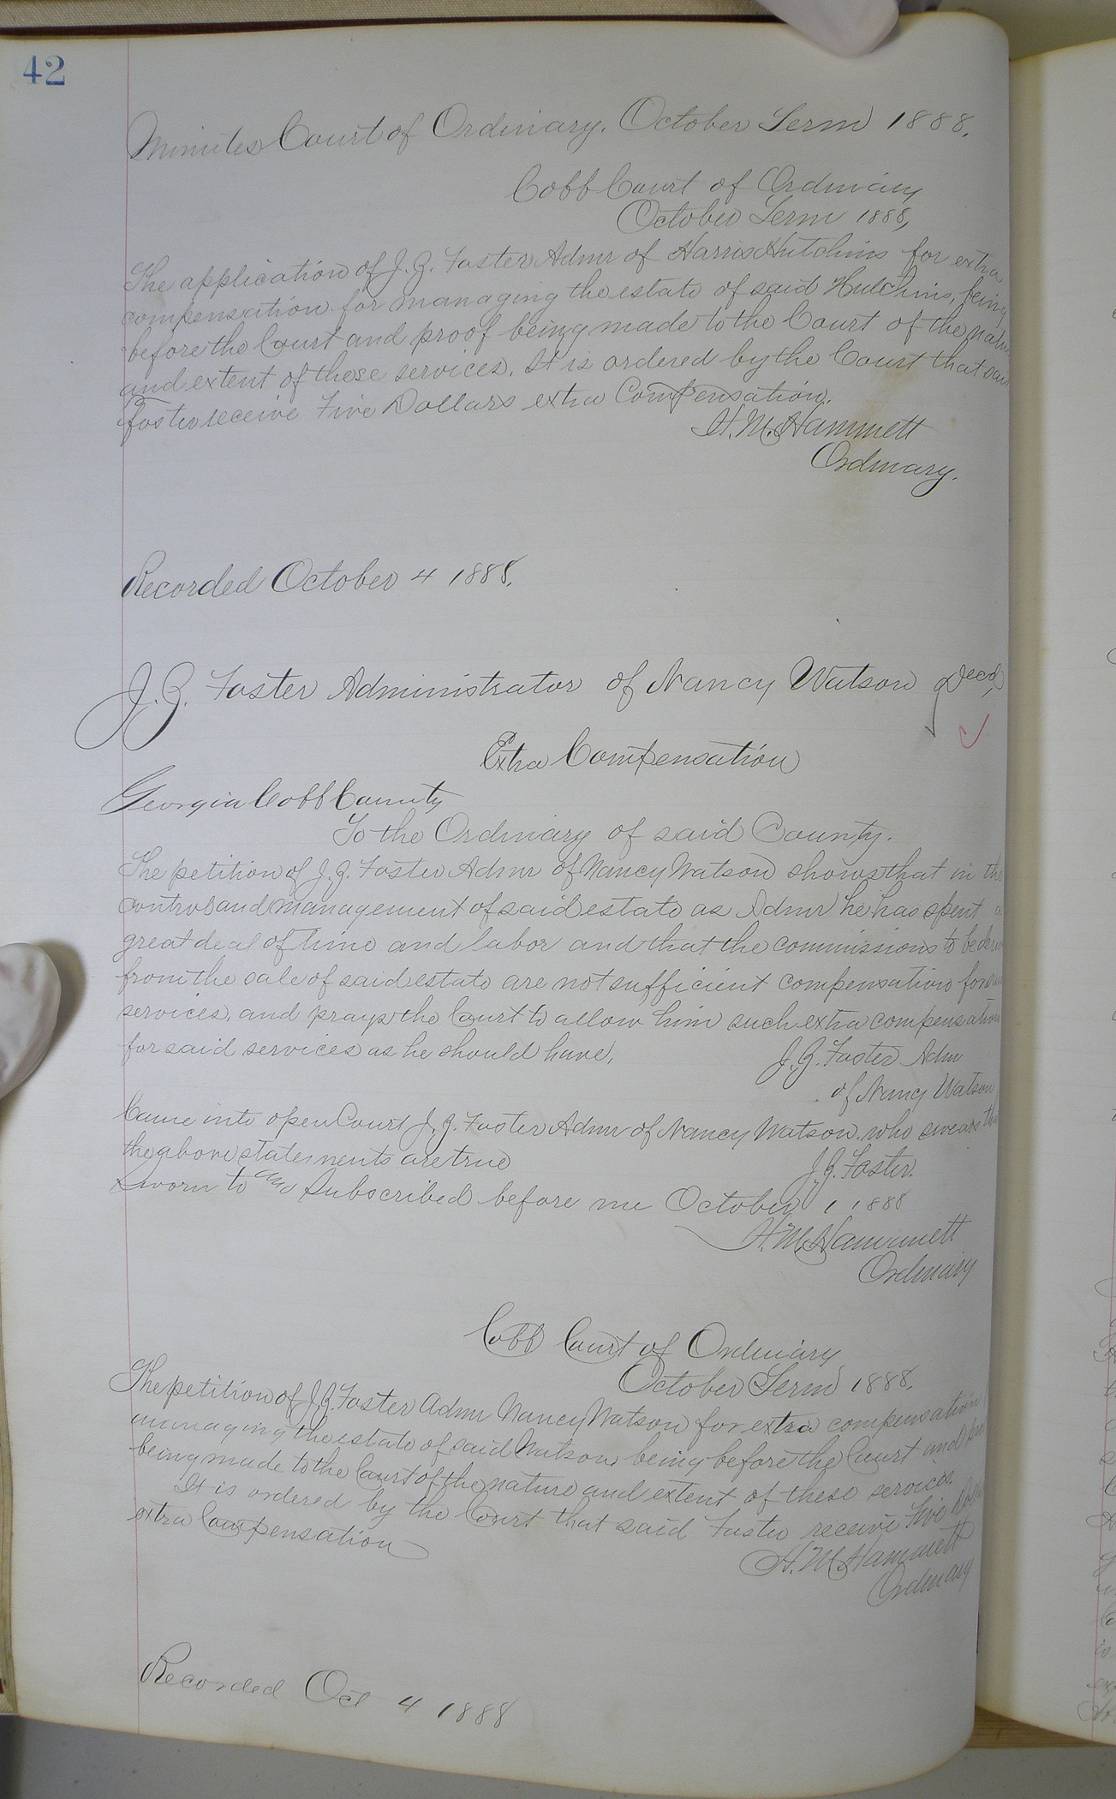 42
Minutes Court of Ordinary. October Term 1888.
Cobb Court of Ordinary
October Term 1888,
The application of J. G. Foster Admr of Harris Hutchins for extra
compensation for managing the estate of said Hutchins, being
before the Court and proof being made to the Court of the
and extent of these services. It is ordered by the Court that
Foster receive Five Dollars extra Compensation.
H. M. Hammett
Ordinary.
Recorded October 4 1888.
J. G. Foster Administrator of Nancy Watson Decd,
Extra Compensation
Georgia Cobb County
To the Ordinary of said County.
The petition of J. G. Foster Admr of Nancy Watson shows that in the
control and management of said estate as Admr he has spent a
great deal of time and labor and that the commissions to be
from the sale of said estate are not sufficient compensation for
services, and prays the Court to allow him such extra compensation
for said services as he should have,
J. G. Foster Adm
of Nancy Watson
Came into open Court J. G. Foster Admr of Nancy Watson who swears that
the above statements are true
J. G. Foster.
Sworn to and Subscribed before me October 1 1888
H. M. Hammett
Ordinary
Cobb Court of Ordinary
October Term 1888.
The petition of J. G. Foster Admr Nancy Watson for extra compensation
managing the estate of said Watson being before the Court and
being made to the Court of the nature and extent of these services
It is ordered by the Court that said Foster receive Five
extra Compensation
H. M. Hammett
Ordinary
Recorded Oct 4 1888